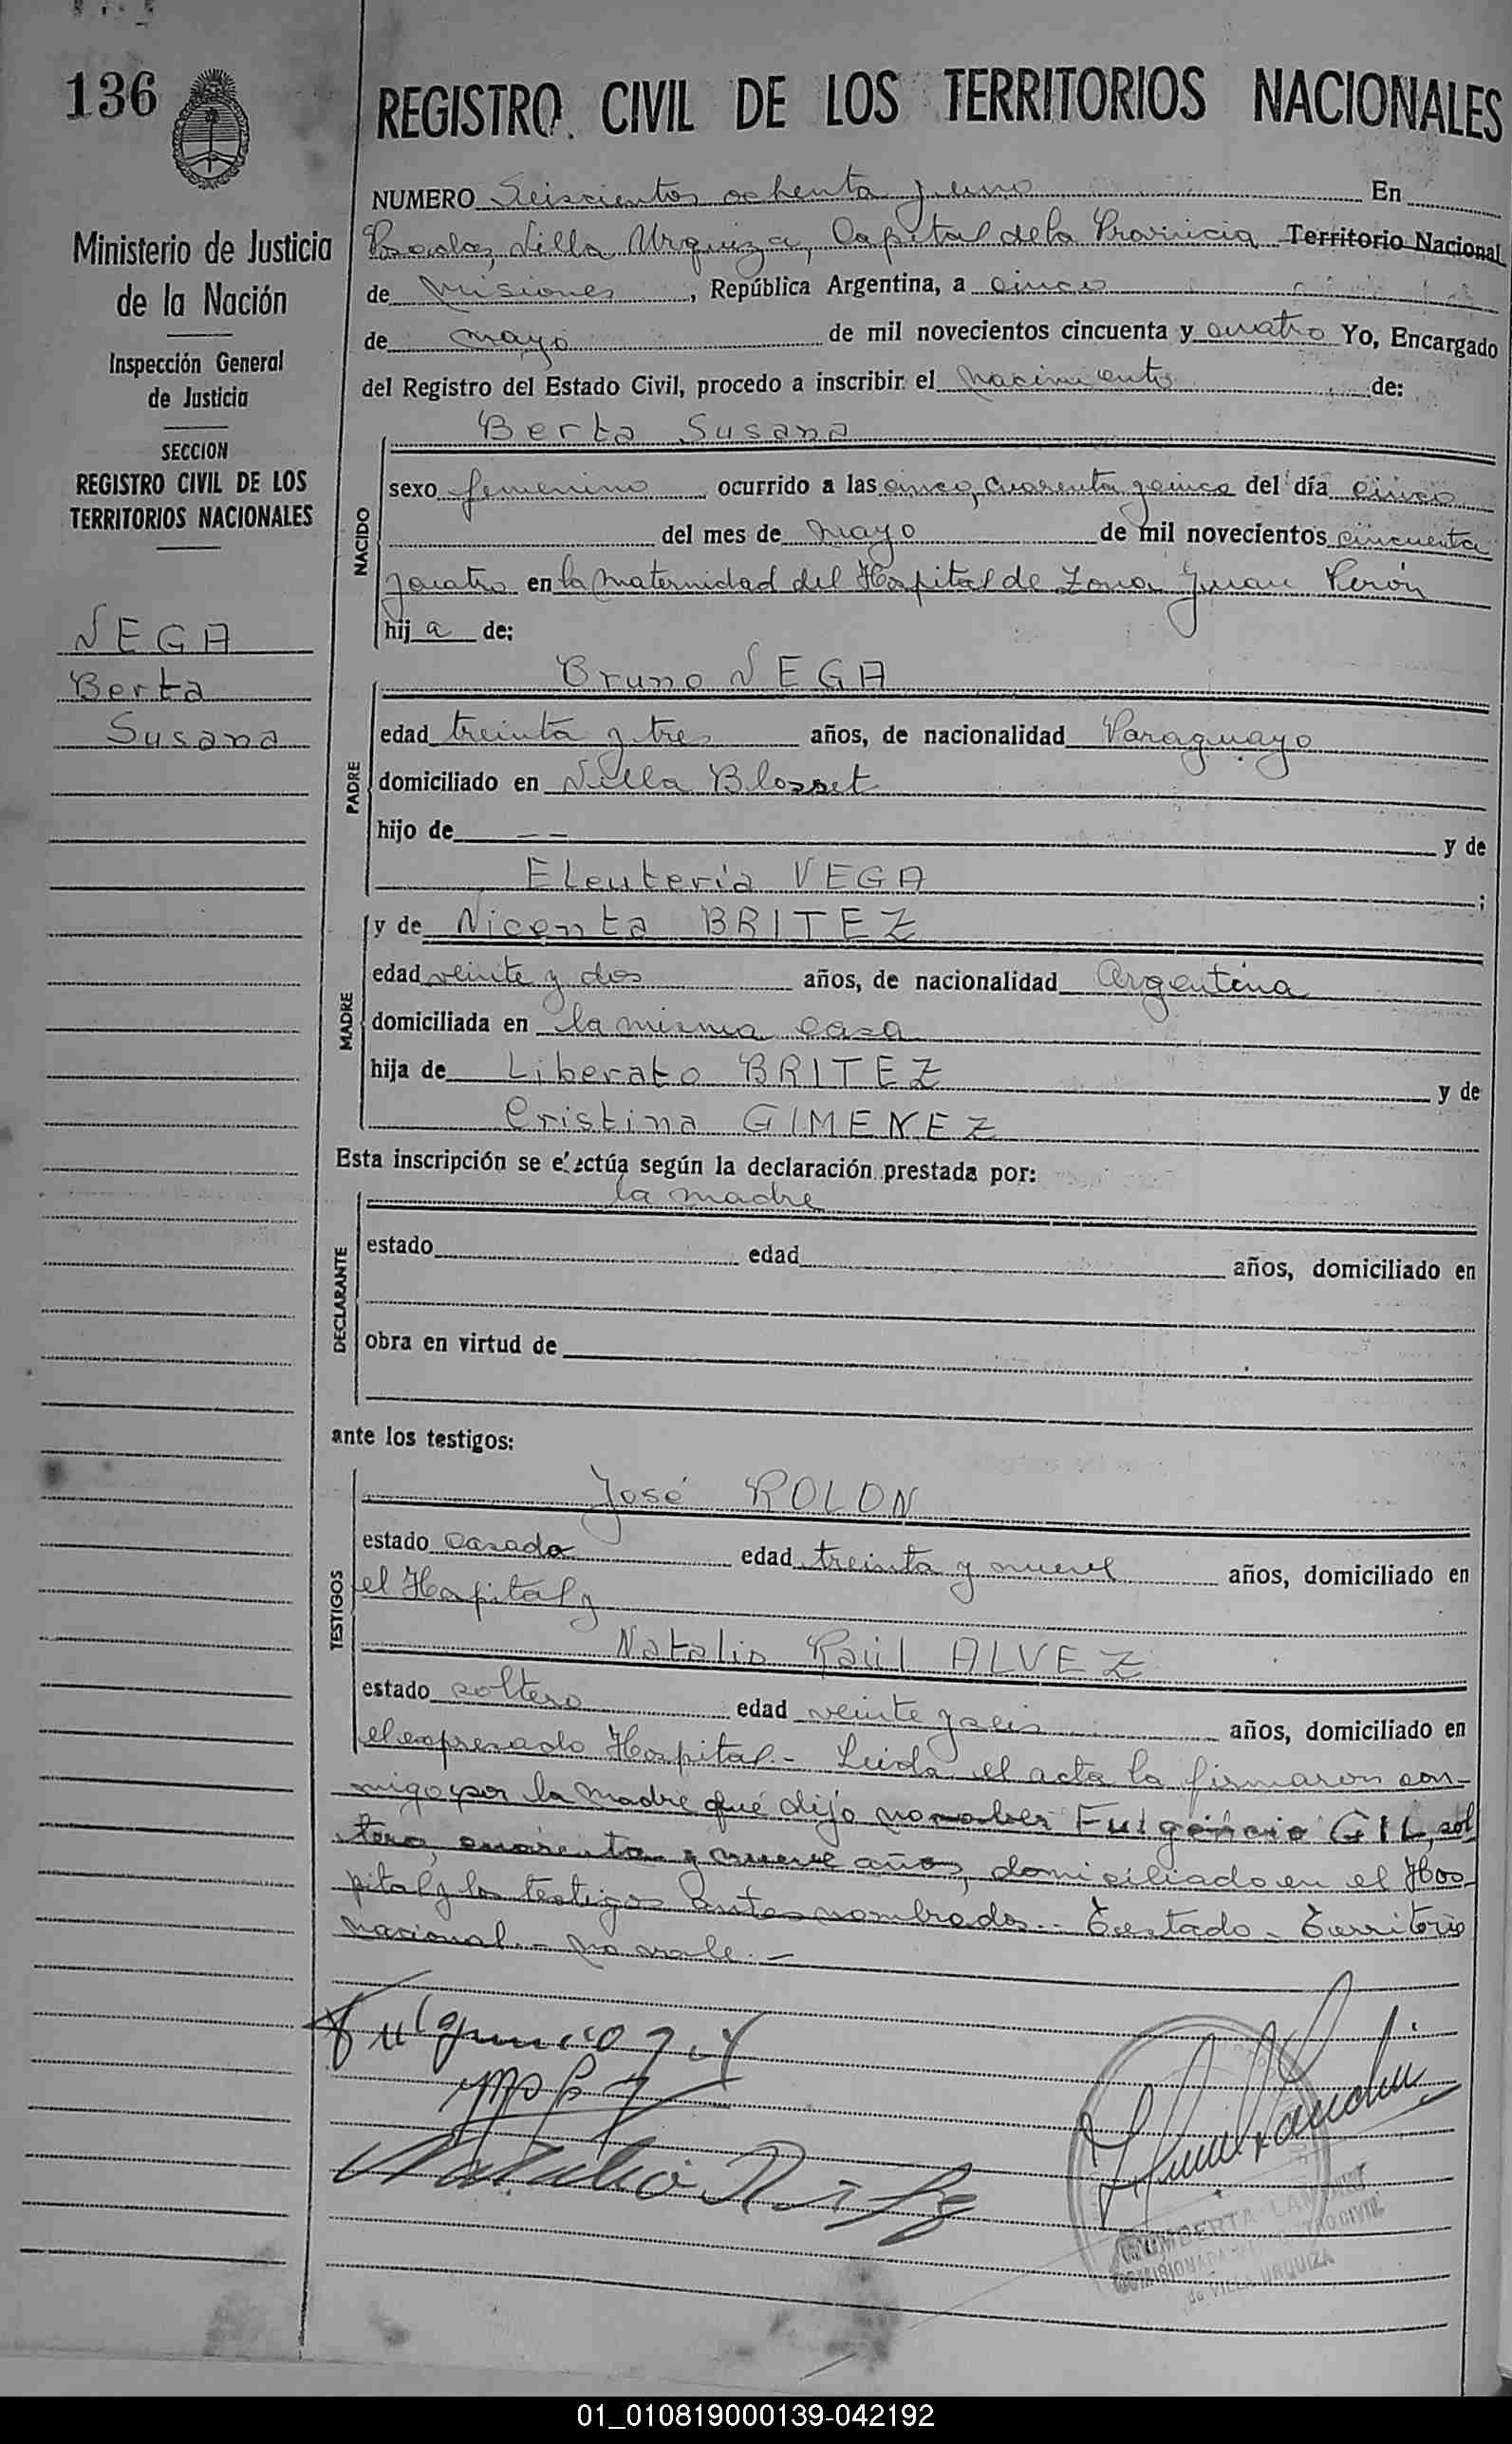 136
REGISTRO CIVIL DE LOS TERRITORIOS NACIONALES
Ministerio de Justicia
de la Nación
Inspección General
de Justicia
SECCION
REGISTRO CIVIL DE LOS
TERRITORIOS NACIONALES
VEGA
Berta
Susana
NUMERO Seiscientos ochenta y uno En
Posadas, Villa Urquiza, Capital de la Provincia Territorio Nacional
de Misiones, República Argentina, a cinco
de mayo de mil novecientos cincuenta y cuatro Yo, Encargado
del Registro del Estado Civil, procedo a inscribir el nacimiento de:
Berta Susana
NACIDO
sexo femenino ocurrido a las cinco, cuarenta y cinco del día cinco
del mes de mayo de mil novecientos cincuenta
y cuatro en la maternidad del Hospital de Zona Juan Perón
hij a de:
Bruno VEGA
PADRE
edad treinta y tres años, de nacionalidad Paraguayo
domiciliado en Villa Blosset
hijo de -- y de
Eleuteria VEGA;
MADRE
y de Vicenta BRITEZ
edad veinte y dos años, de nacionalidad Argentina
domiciliada en la misma casa
hija de Liberato BRITEZ y de
Cristina GIMENEZ
Esta inscripción se efectúa según la declaración prestada por:
la madre
DECLARANTE
estado edad años, domiciliado en
obra en virtud de
ante los testigos:
José ROLON
TESTIGOS
estado casado edad treinta y nueve años, domiciliado en
el Hospital y
Natalio Raúl ALVEZ
estado soltero edad veinte y seis años, domiciliado en
el expresado Hospital.- Leida el acta la firmaron con-
migo por la madre que dijo no saber Fulgencio GIL, sol
tero, cuarenta y nueve años, domiciliado en el Hos
pital y los testigos antes nombrados.- Testado - Territorio
nacional.- no vale.-
Fulgencio Gil
Natalio R
HUMBERTA LANDINI
COMISIONADA REGISTRO CIVIL
de VILLA URQUIZA
01_010819000139-042192